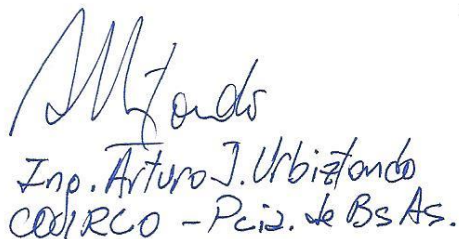 Ing. Arturo J. Urbiztondo
CODIRCO - Pcia. de Bs As.